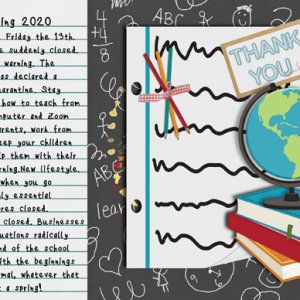 ing 2020
Friday the 13th.
e suddenly closed.
warning. The
as declared a
arantine. Stay
how to teach from
mputer and Zoom
arents, work from
eep your children
lp them with their
rning.New lifestyle.
when you go
ly essential
ores closed.
closed. Businesses
uations radically
nd of the school
ith the beginnings
rmal, whatever that
t a spring!
4
+4
8
ABC
THANK
YOU
lear
ABC